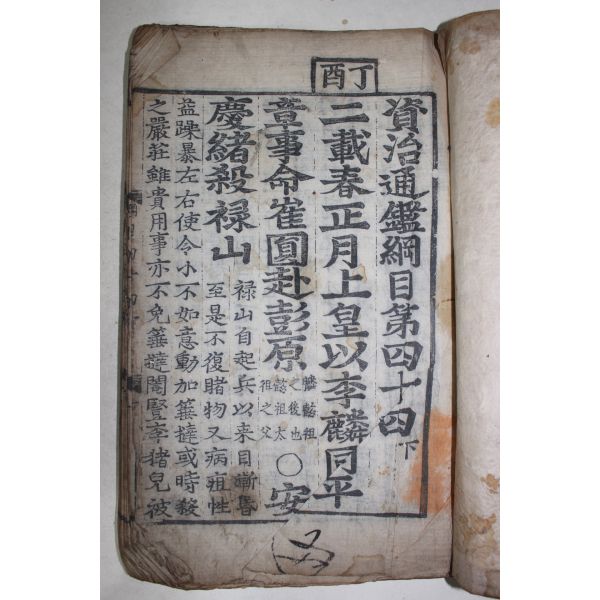 丁酉
資治通鑑綱目第四十四下
二載春正月上皇以李麟同平
章事命崔圓赴彭原
麟懿祖
之後也
懿祖太
祖之父
○安
慶緒殺禄山
禄山自起兵以来目漸昏
至是不復睹物又病疽性
益躁暴左右使令小不如意動加箠撻或時殺
之嚴莊雖貴用事亦不免箠撻閹竪李猪兒被